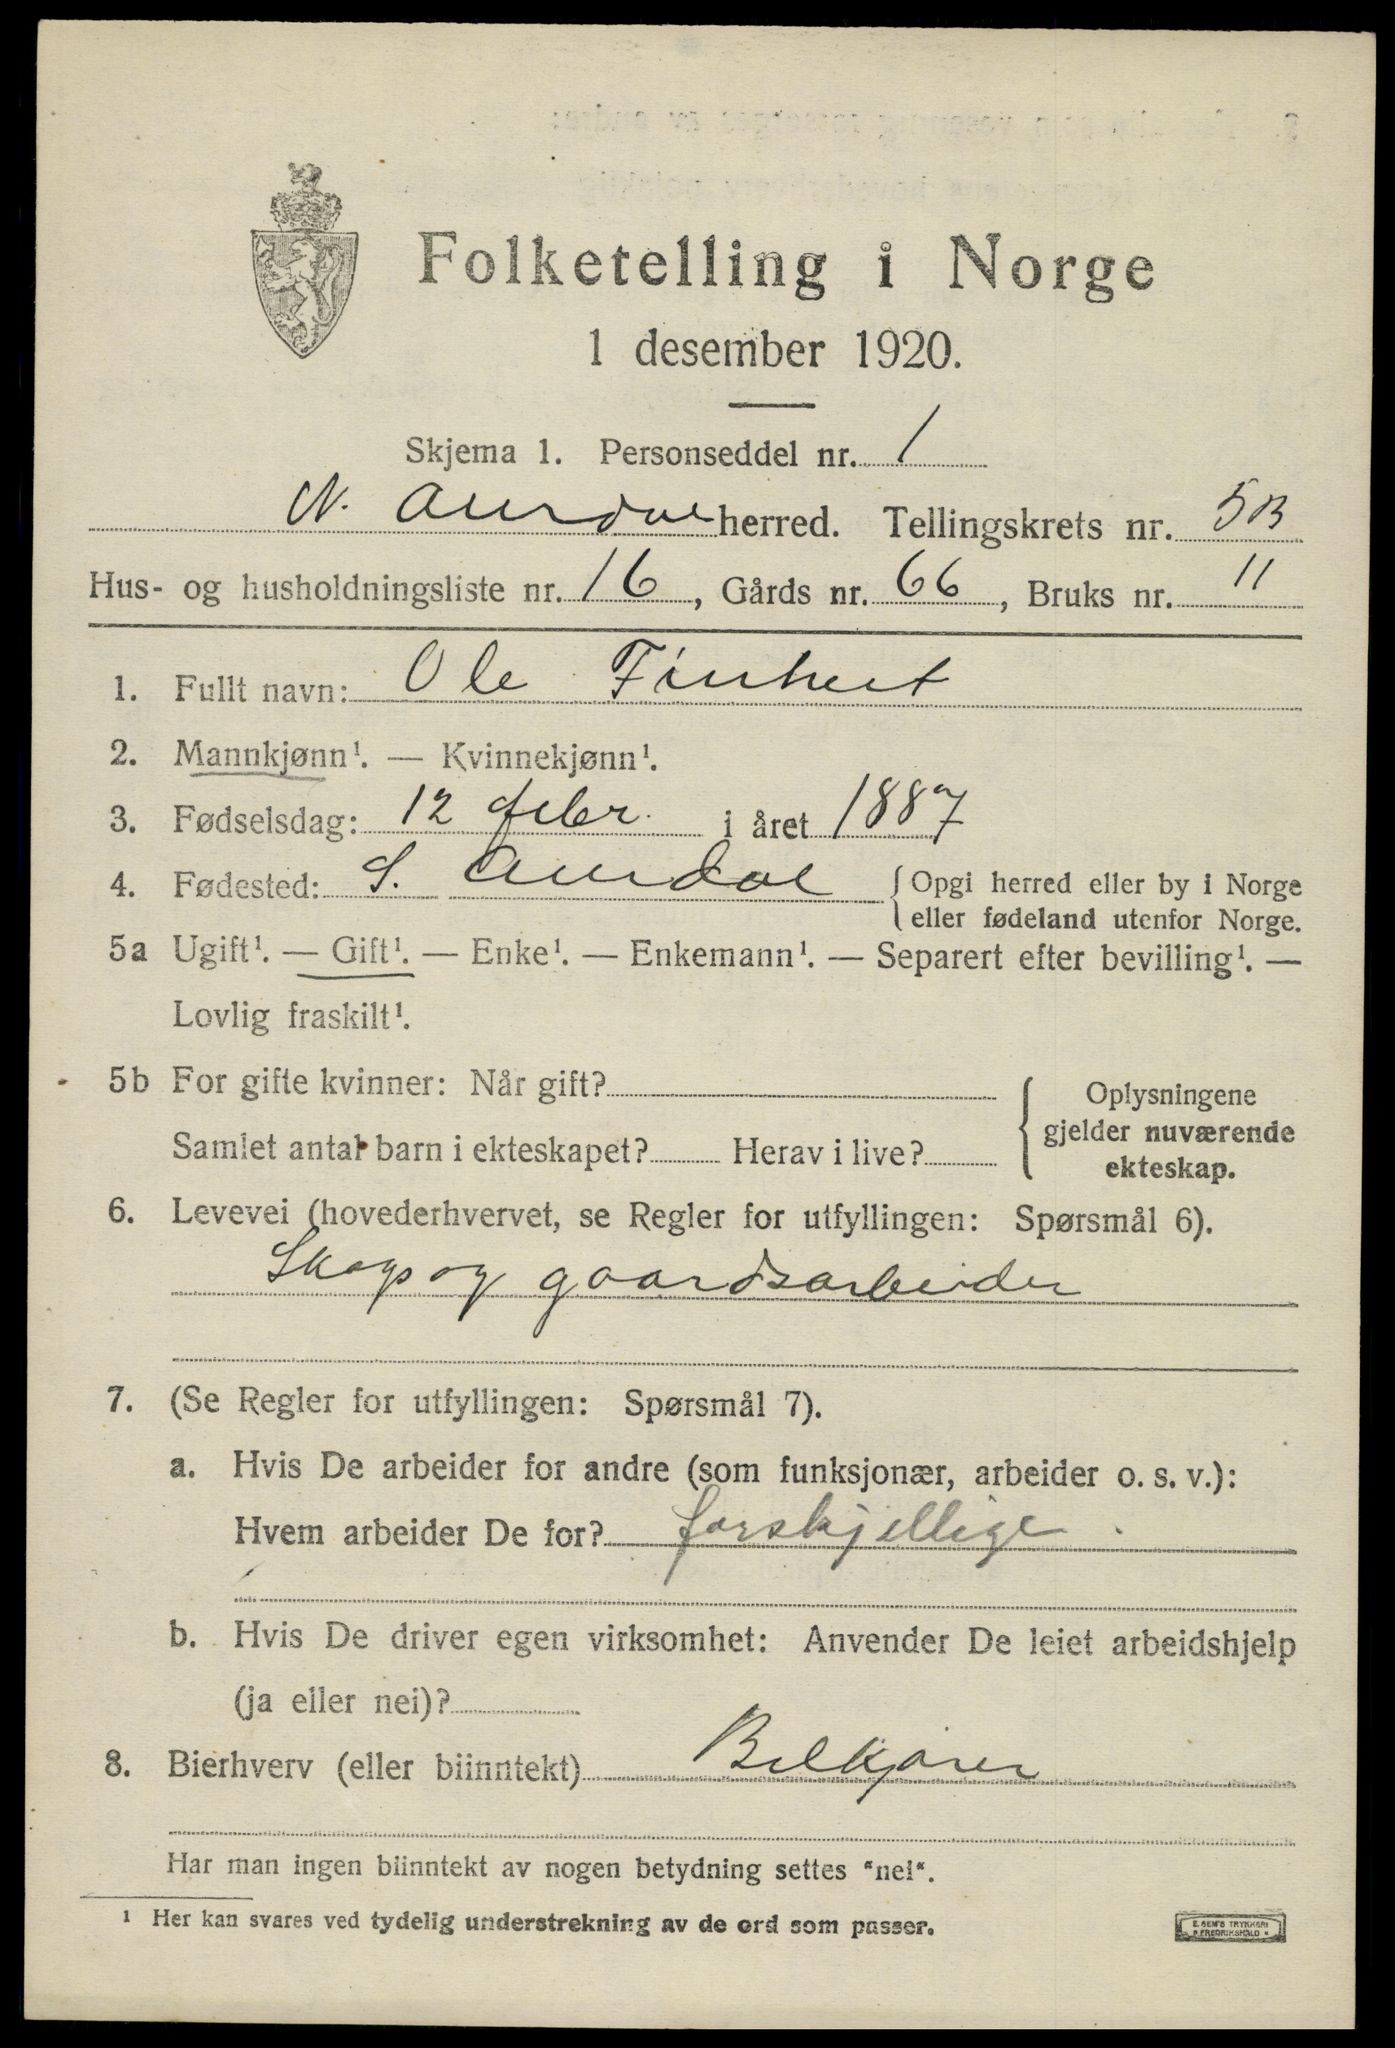 Folketelling i Norge
1 desember 1920.
Skjema 1. Personseddel nr. 1
N. Aurdal herred. Tellingskrets nr. 5B
Hus- og husholdningsliste nr. 16, Gårds nr. 66, Bruks nr. 11
1. Fullt navn: Ole Finhert
2. Mannkjønn¹. — Kvinnekjønn¹.
3. Fødselsdag: 12 febr. i året 1887
4. Fødested: S. Aurdal { Opgi herred eller by i Norge
eller fødeland utenfor Norge.
5a Ugift¹. — Gift¹. — Enke¹. — Enkemann¹. — Separert efter bevilling¹. —
Lovlig fraskilt¹.
5b For gifte kvinner: Når gift?
Samlet antal barn i ekteskapet? Herav i live?
Oplysningene
gjelder nuværende
ekteskap.
6. Levevei (hovederhvervet, se Regler for utfyllingen: Spørsmål 6).
Skogs og gaardsarbeider
7. (Se Regler for utfyllingen: Spørsmål 7).
a. Hvis De arbeider for andre (som funksjonær, arbeider o. s. v.):
Hvem arbeider De for? forskjellige.
b. Hvis De driver egen virksomhet: Anvender De leiet arbeidshjelp
(ja eller nei)?
8. Bierhverv (eller biinntekt) Bilkjører
Har man ingen biinntekt av nogen betydning settes "nei".
¹ Her kan svares ved tydelig understrekning av de ord som passer.
E. SEM'S TRYKKERI
FREDRIKSHALD